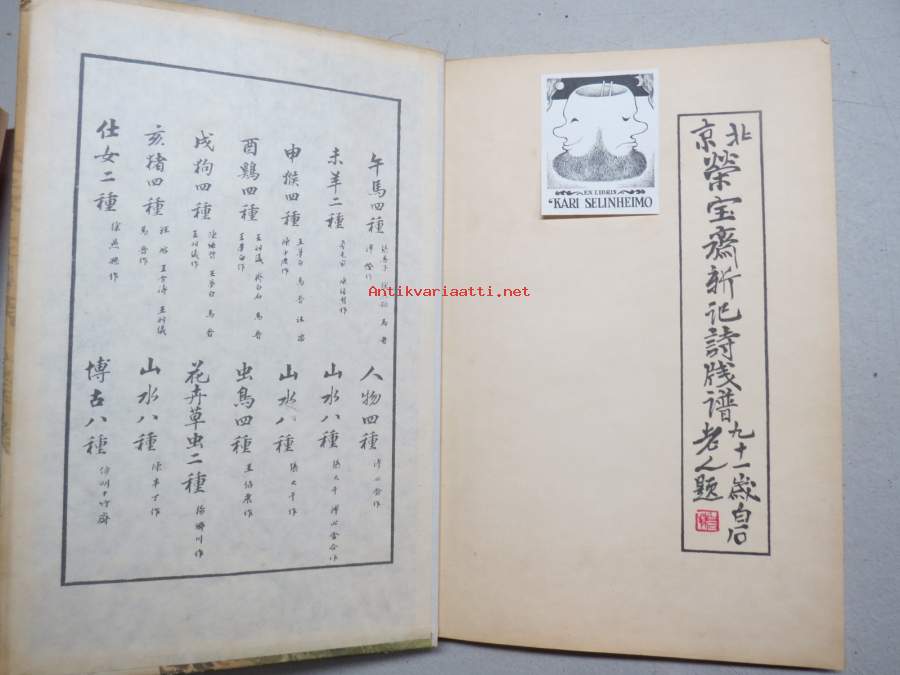 北京榮宝斋新记詩牋谱
九十一歲白石
老人題
EX LIBRIS
KARI SELINHEIMO
午馬四種
馬晉
未羊二種
申猴四種 王夢白 馬晉
酉鷄四種 王羽儀 馬晉
王夢白作
戌狗四種 王夢白 馬晉
王羽儀作
亥猪四種 王雪涛 王羽儀
馬晉作
仕女二種 徐燕孫作
人物四種 溥心畬作
山水八種 張大千 溥心畬合作
山水八種 張大千作
虫鳥四種
花卉草虫二種
山水八種 陳半丁作
博古八種 仿明十竹齋
Antikvariaatti.net